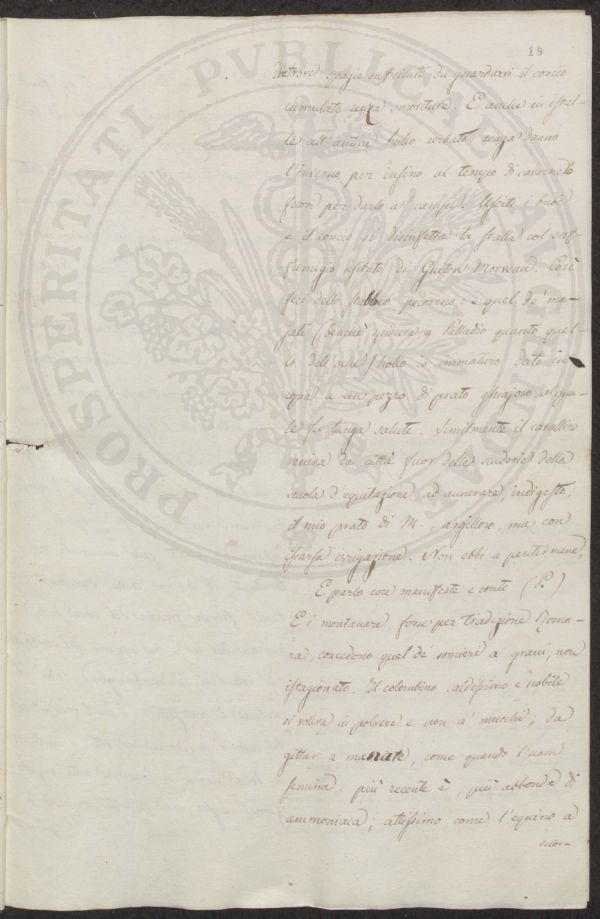 18
spazio sufficiente da guardarvi il concio
cumulato senza smoriture. E anche in istal-
le all' antica hollo serbato senza danno
l'inverno per insino al tempo di carrearlo
fuori per darlo a' campi. Usciti i buoi
e il concio si disinfetta la stalla col suf-
fumigio usitato di Guiton Morveau. Così
feci dello stabbio pecorino: e quel de' ma-
jali (benchè a Palladio quanto quel-
lo dell' ) hollo io immaturo dato in
a un pezzo di prato ghiajoso,
le fu lunga salute. Similmente il cavallino
veniva da città fuor delle scuderie della
scuola d'equitazione ad innerare, indigesto,
il mio prato di M., argilloso, ma con
iscarsa irrigazione. Non ebbi a pentirmene,
E parlo cose manifeste e conte (P.)
E i montanari, forse per tradizione Roma-
na, concedono quel de' somieri a' grani, non
istagionato. Il colombino caldissimo e nobile
si voleva in polvere e non a' mucchi; da
gittar a manate, come quando l'uom
semina: più recente è, più abbonda di
ammoniaca; attissimo come l'equino a
scior-
PROSPERITATI PVBLICAE AVGENDAE